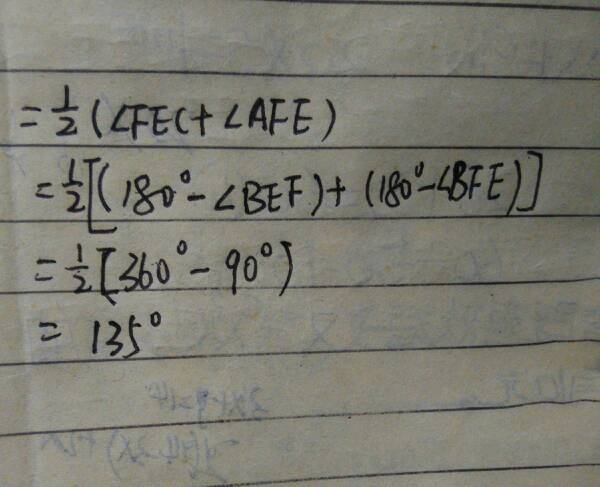 =½(∠FEC+∠AFE)
=½[(180°-∠BEF)+(180°-∠BFE)]
=½[360°-90°]
= 135°